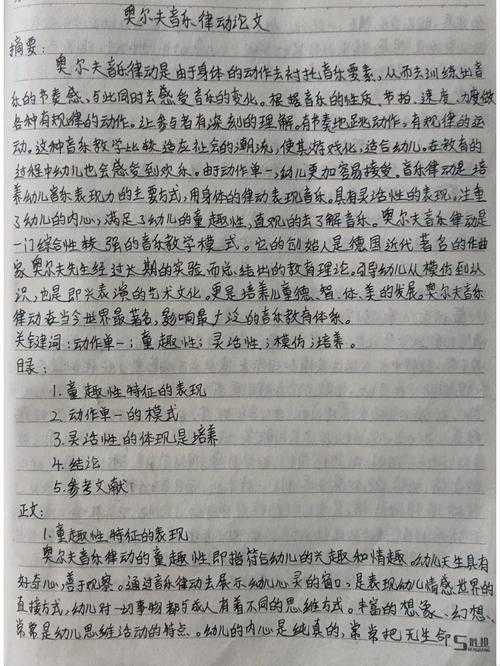 奥尔夫音乐律动论文
摘要：
奥尔夫音乐律动是由于身体的动作去衬托音乐要素，从而去训练出音
乐的节奏感，与此同时去感受音乐的变化。根据音乐的性质、节拍、速度、力度做
各种有规律的动作。让参与者有深刻的理解。有节奏地跳动作，有规律的运
动。这种音乐教学比较适应社会的潮流，使其游戏化，适合幼儿。在教育的
过程中幼儿也会感受到欢乐。由于动作单一，幼儿更加容易接受。音乐律动是培
养幼儿音乐表现力的主要方式，用身体的律动表现音乐。具有灵活性的表现，注重
了幼儿的内心，满足了幼儿的童趣性，直观的去了解音乐。奥尔夫音乐律动是
一门综合性较强的音乐教学模式。它的创始人是德国近代著名的作曲
家奥尔夫先生经过长期的实验而总结出的教育理论。引导幼儿从模仿到认
识，也是即兴表演的艺术文化。更是培养儿童德、智、体、美的发展。奥尔夫音乐
律动在当今世界最著名，影响最广泛的音乐教育体系。
关键词：动作单一；童趣性；灵活性；模仿；培养。
目录：
1.童趣性特征的表现
2.动作单一的模式
3.灵活性的体现是培养
4.结论
5.参考文献
正文：
1.童趣性特征的表现
奥尔夫音乐律动的童趣性即指符合幼儿的兴趣和情趣。幼儿天生具有
好奇心，善于观察。通过音乐律动去展示幼儿心灵的窗口，是表现幼儿情感世界的
直接方式，幼儿对一切事物都与成人有着不同的思维方式。丰富的想象、幻想、
常常是幼儿思维活动的特点。幼儿的内心是纯真的，常常把无生命